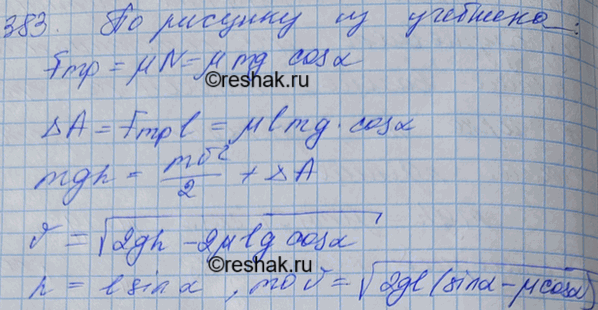 383. По рисунку из учебника:
Fтр = μN = μmg cosα
©reshak.ru
ΔA = Fтр l = μlmg · cosα
mgh = mυ²/2 + ΔA
υ = √(2gh - 2μlg cosα)
©reshak.ru
h = l sinα, то υ = √(2gl(sinα - μcosα))